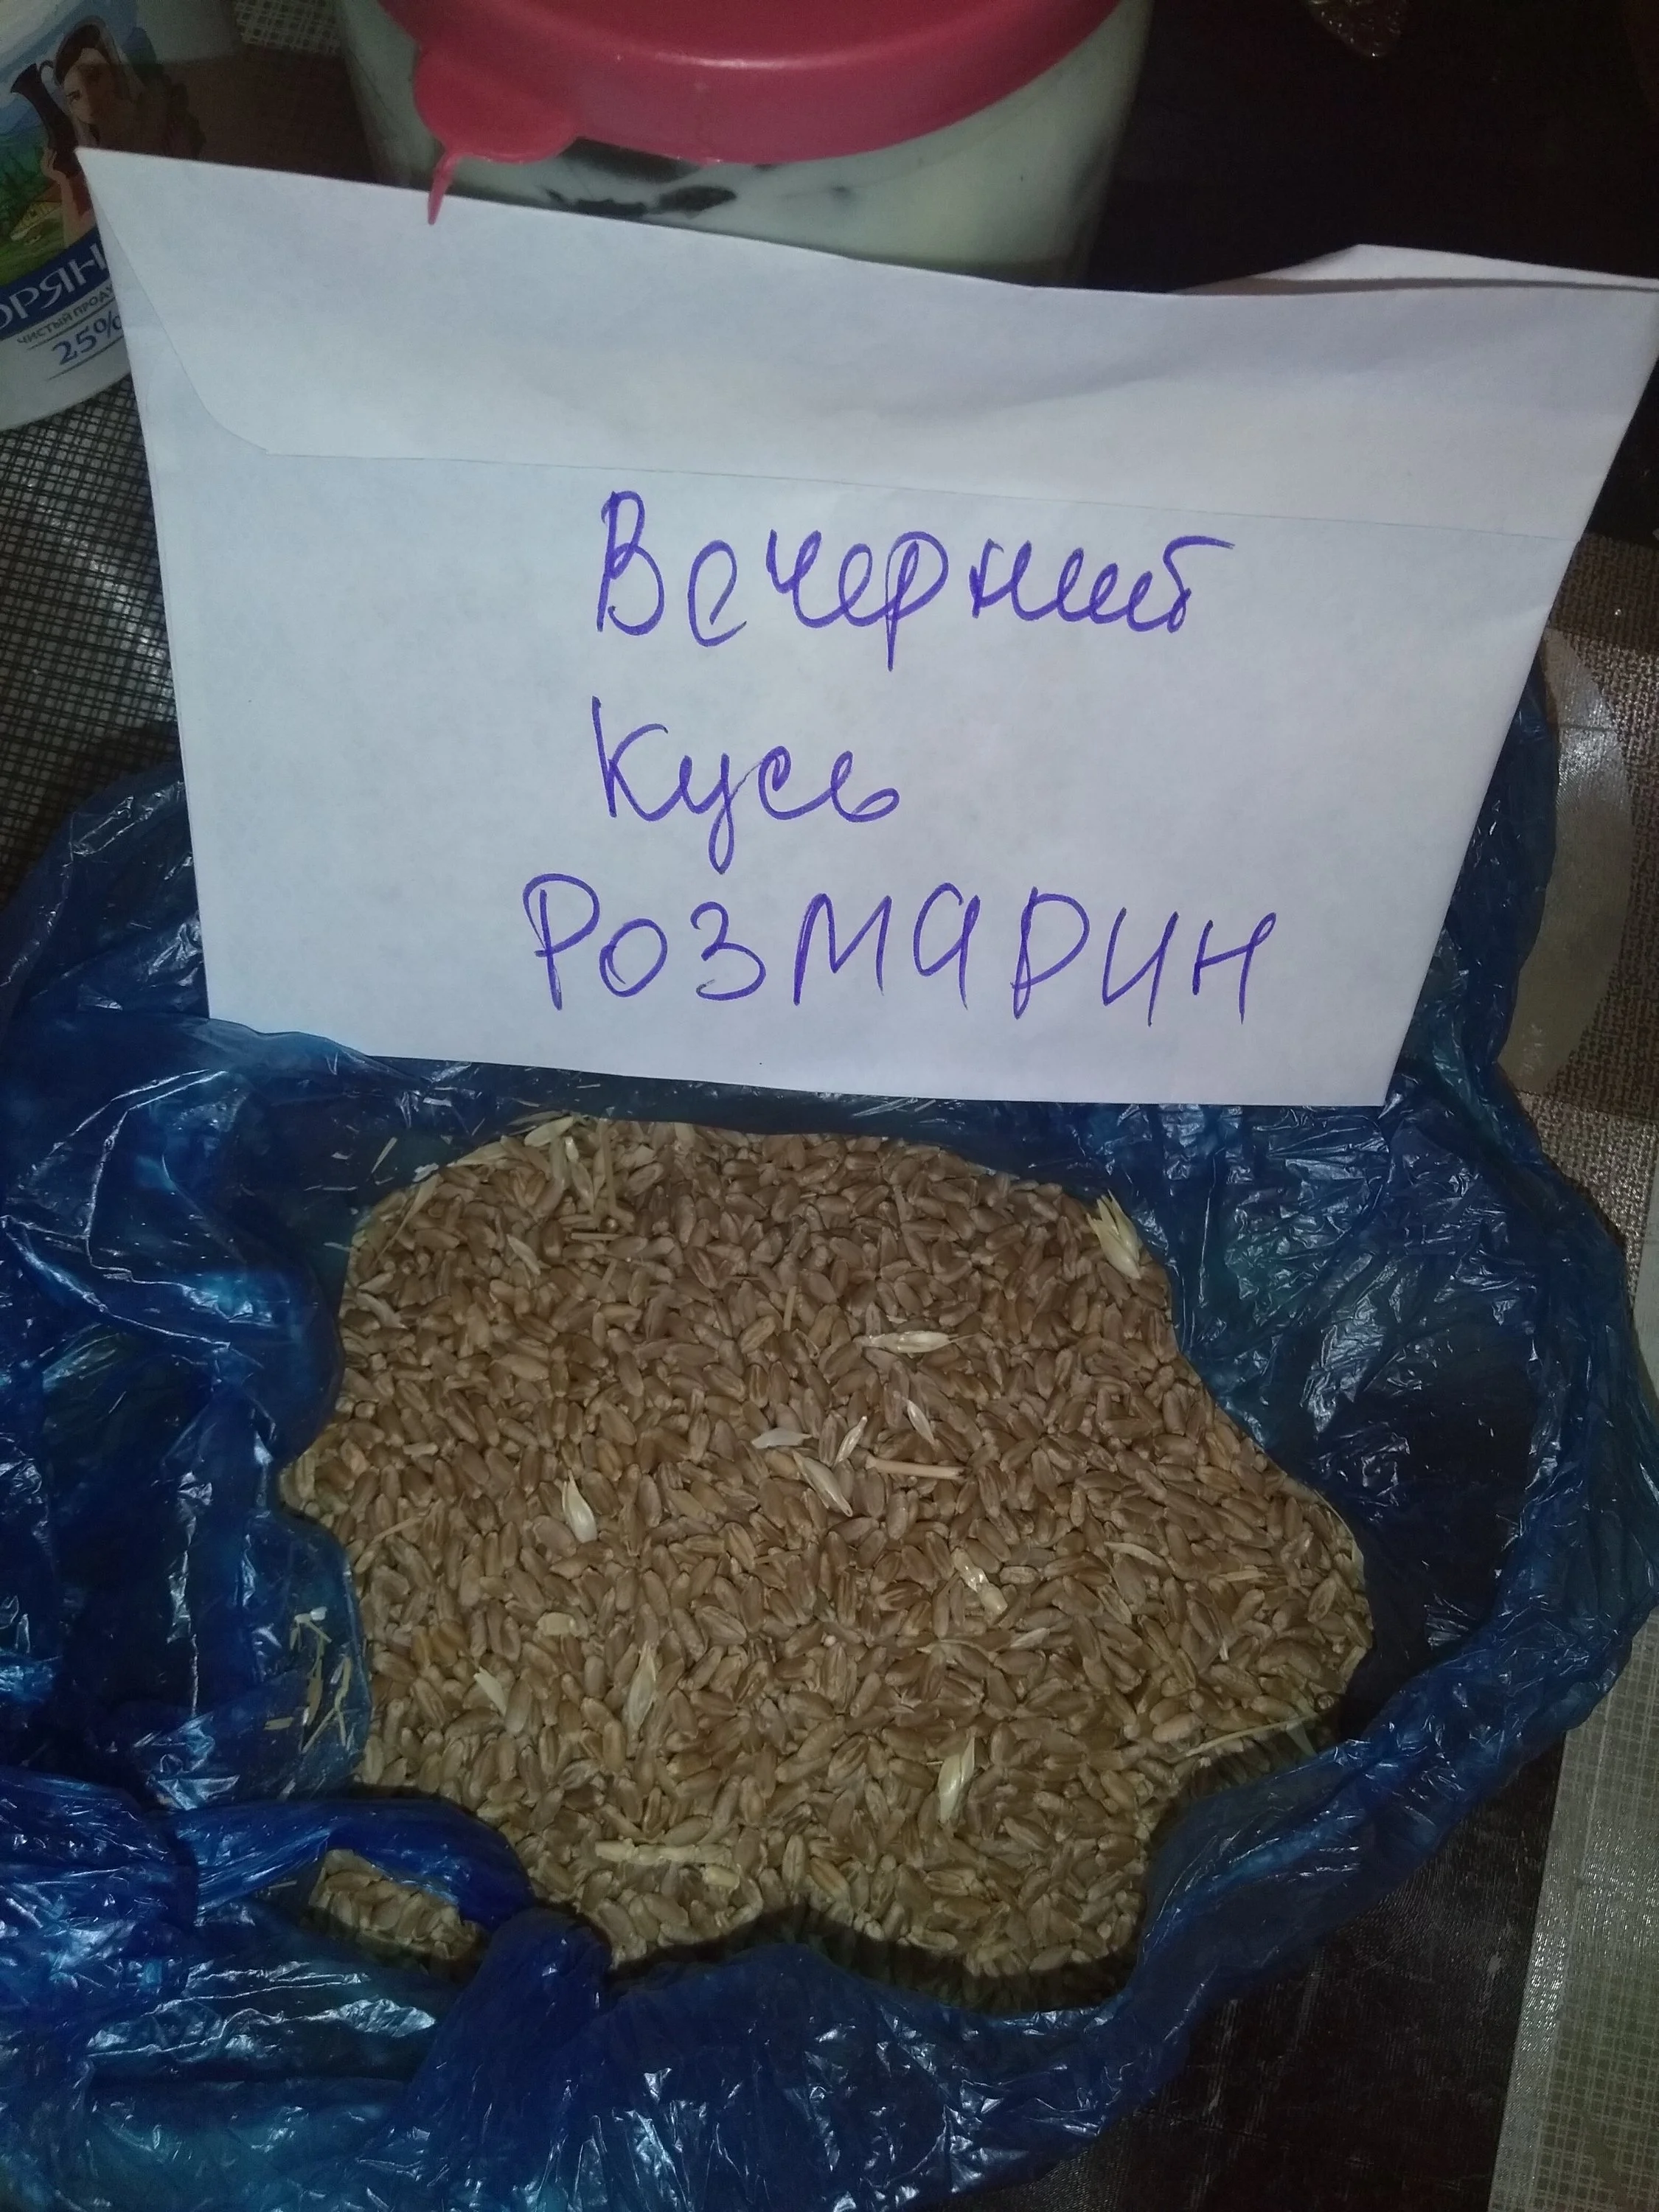 ОРЯН
ЧИСТЫЙ ПРОДУ
25%
Вечерний
Кусь
РОЗМАРИН